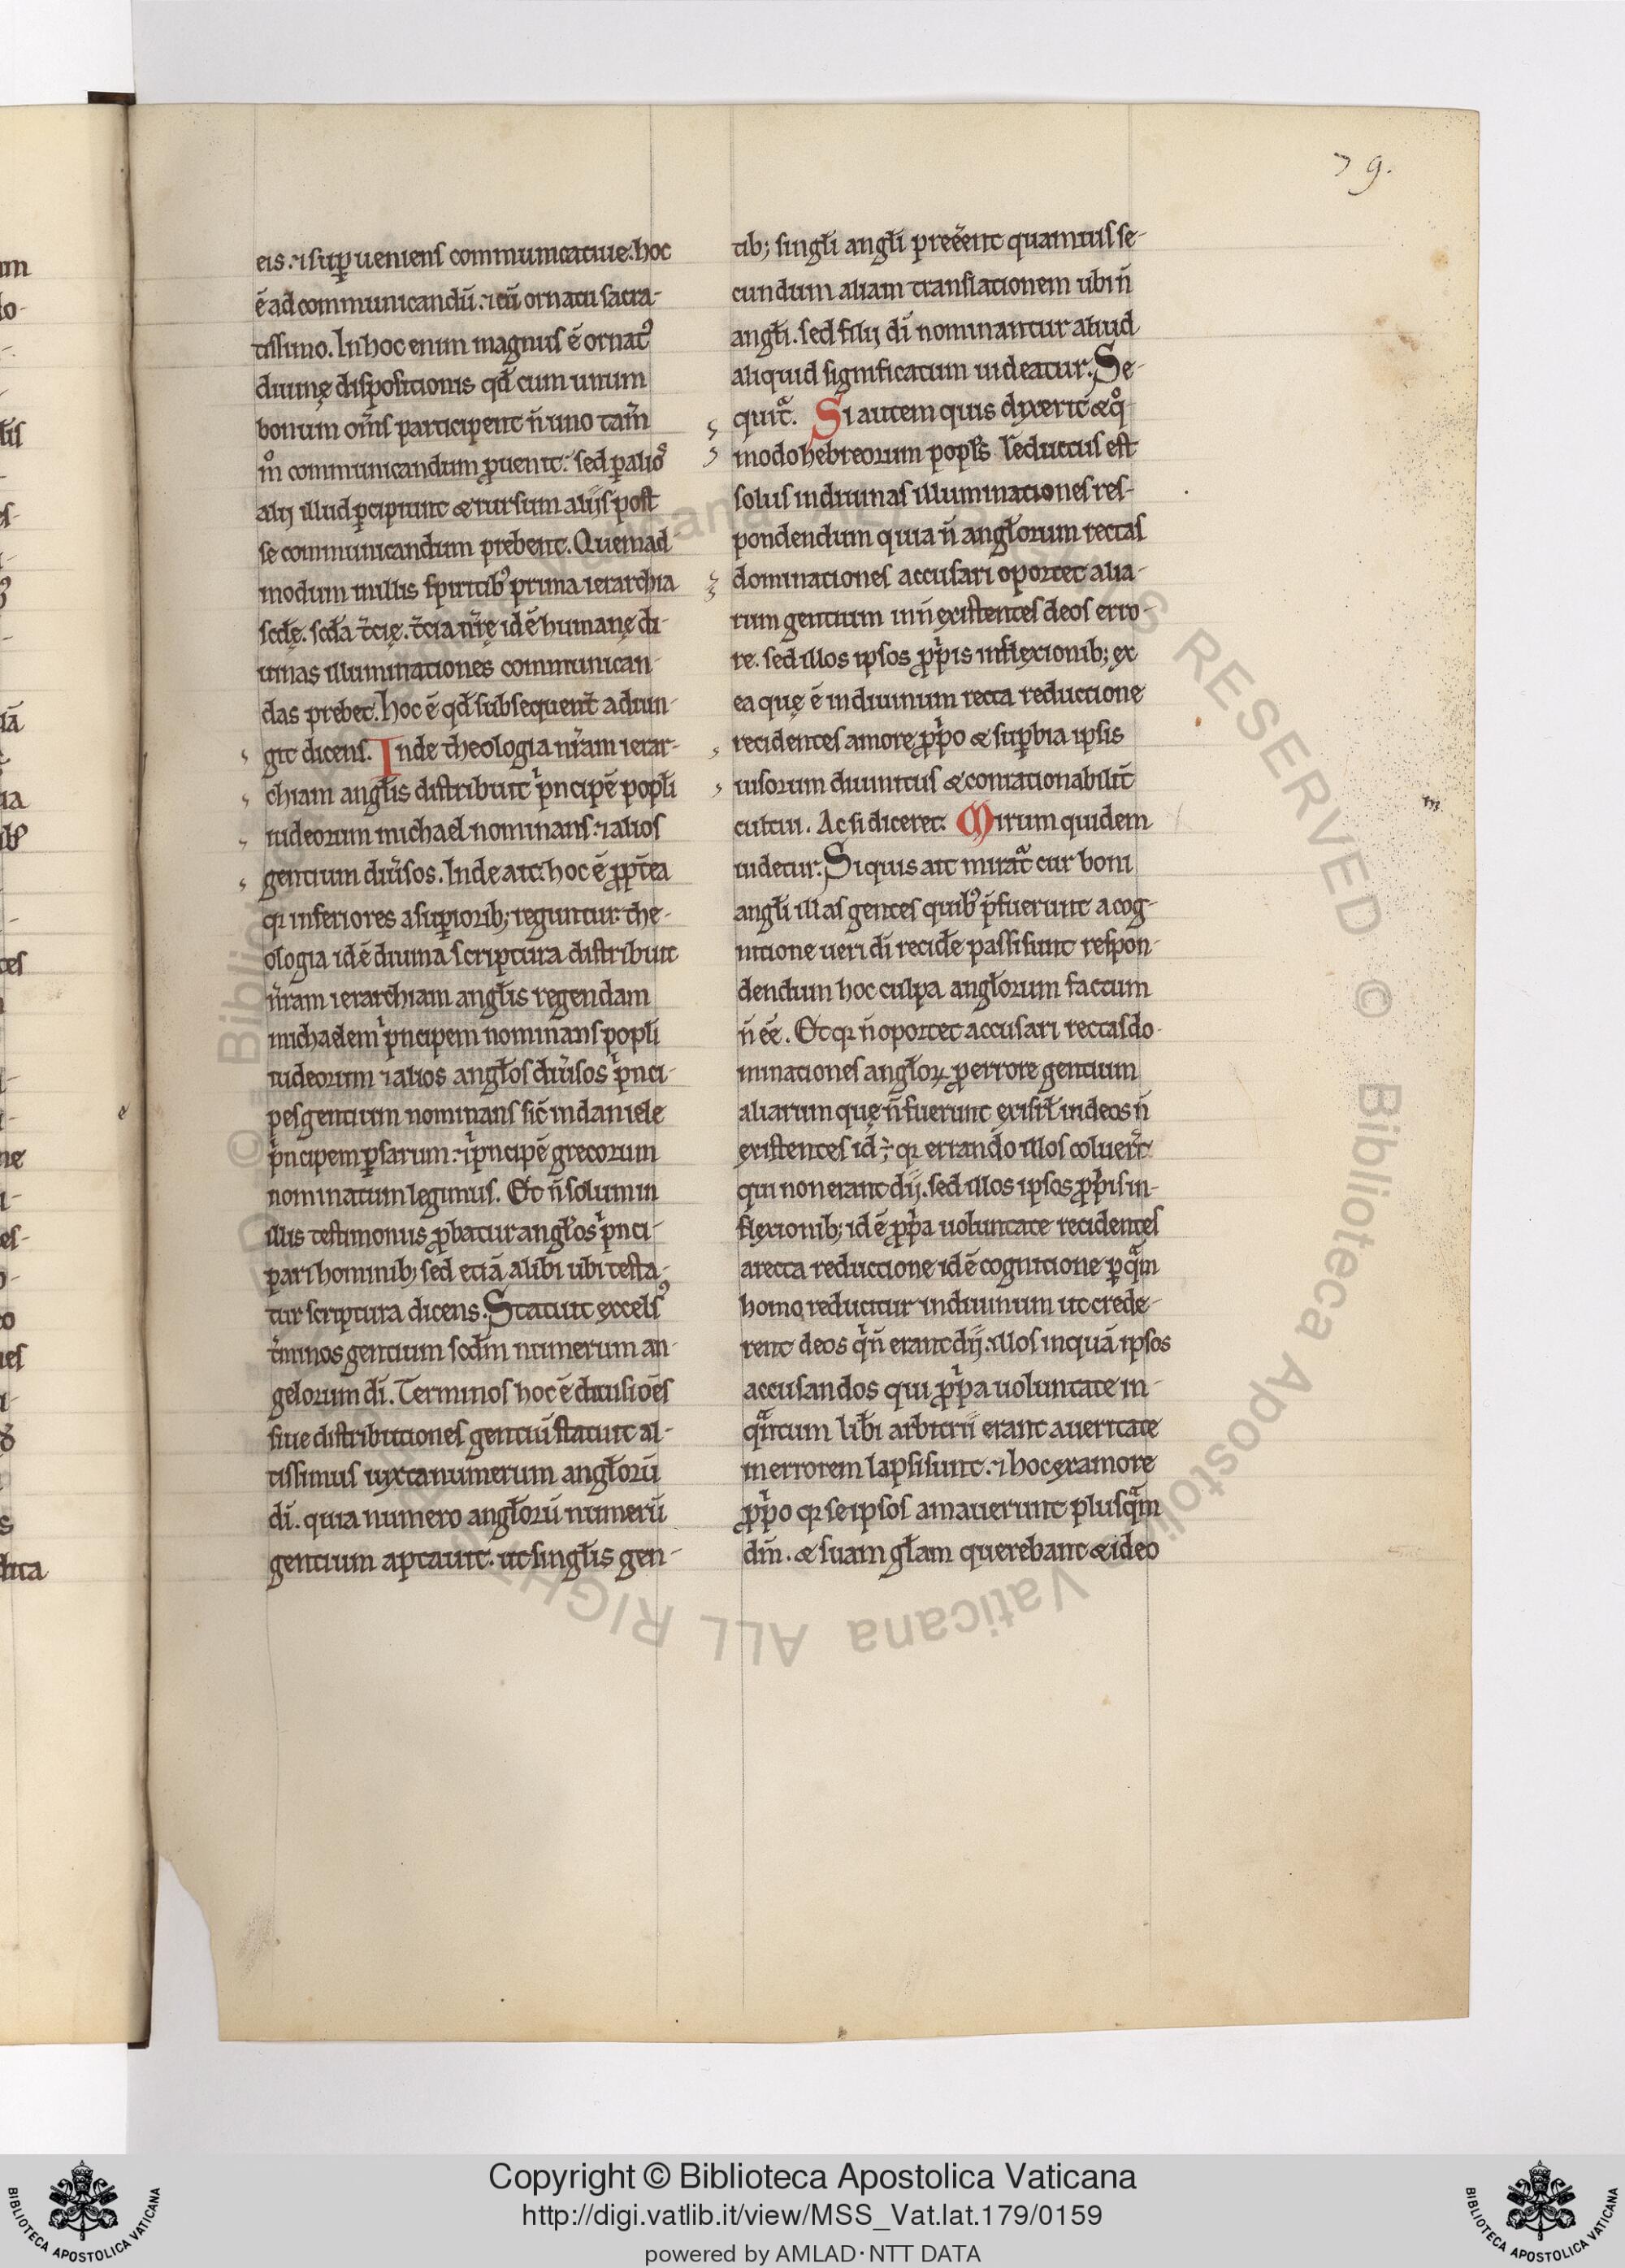 79.
eis. ⁊ sup̱ueniens communicatiue. hoc
ē ad communicandū. ⁊ cū ornatu sacra-
tissimo. In hoc enim magnus ē ornatꝰ
diuinę dispositionis qđ cum unum
bonum om̄s participent n̄ uno tam̄
mº communicandum ꝓuenit. sed ꝑ aliºˢ
alij illud ꝑcipiunt & rursum alijs post
se communicandum prebent. Quemad
modum in illis spiritibꝰ prima ierarchia
scđę. scđa t̄cię. t̄cia nr̄ę id ē humanę di-
uinas illuminationes communican-
das prebet. hoc ē qđ subsequent̄ adiun-
git dicens. Inde theologia nr̄am ierar-
chiam angl̄is distribuit pⁱncipē popl̄i
iudeorum michael nominans. ⁊ alios
gentium diu̓sos. Inde ait. hoc ē ꝓpt̄ea
qꝛ inferiores a sup̱iorib; reguntur. the-
ologia id ē diuina scriptura distribuit
nr̄am ierarchiam angl̄is regendam
michaelem pⁱncipem nominans popl̄i
iudeorum ⁊ alios angl̄os diu̓sos pⁱnci-
pes gentium nominans sic̄ in daniele
pⁱncipem ꝑsarum. ⁊ pⁱncipē grecorum
nominatum legimus. Et n̄ solum in
illis testimoniis ꝓbatur angl̄os pⁱnci-
pari hominib; sed etiā alibi ubi testa-
tur scriptura dicens. Statuit excelsꝰ
t̄minos gentium scđm numerum an-
gelorum dī. Terminos hoc ē diuisiōes
siue distributiones gentiū statuit al-
tissimus iuxta numerum angl̄orū
dī. quia numero angl̄orū numerū
gentium aptauit. ut singl̄is gen-
tib; singl̄i angl̄i preēēnt quamuis se-
cundum aliam translationem ubi n̄
angl̄i. sed filij dī nominantur aliud
aliquid significatum uideatur. Se-
quitᷓ. Si autem quis dixerit & qº-
modo hebreorum popl̄s reductus est
solus in diuinas illuminationes res-
pondendum quia n̄ angl̄orum rectas
dominationes accusari oportet alia-
rum gentium in n̄ existentes deos erro-
re. sed illos ipsos ꝓpⁱis inflexionib; ex
ea quę ē in diuinum recta reductione
recidentes amore ꝓpⁱo & sup̱bia ipsis
uisorum diuinitus & conrationabilit̄
cultui. Ac si diceret. Mirum quidem
uidetur. Si quis ait miratᷓ cur boni
angl̄i illas gentes quibꝰ p̄fuerunt a cog-
nitione ueri dī recid̓e passi sunt respon-
dendum hoc culpa angl̄orum factum
n̄ eē. Et qꝛ n̄ oportet accusari rectas do-
minationes angl̄oꝝ ꝓ errore gentium
aliarum quę n̄ fuerunt
existentes id ÷ qꝛ errando illos coluer̄t
qui non erant dij. sed illos ipsos ꝓpⁱis in-
flexionib; id ē ꝓpⁱa uoluntate recidentes
a recta reductione id ē cognitione ꝑ qᷓm
homo reducitur in diuinum ut crede-
rent deos qⁱ n̄ erant dij. illos inquā ipsos
accusandos qui ꝓpⁱa uoluntate in-
qᷓntum lib̄i arbitrii erant a ueritate
in errorem lapsi sunt. ⁊ hoc ex amore
ꝓpⁱo qꝛ se ipsos amauerunt plusqᷓm
dm̄. & suam gl̄am querebant & ideo
Copyright © Biblioteca Apostolica Vaticana
http://digi.vatlib.it/view/MSS_Vat.lat.179/0159
powered by AMLAD·NTT DATA
BIBLIOTECA APOSTOLICA VATICANA
BIBLIOTECA APOSTOLICA VATICANA